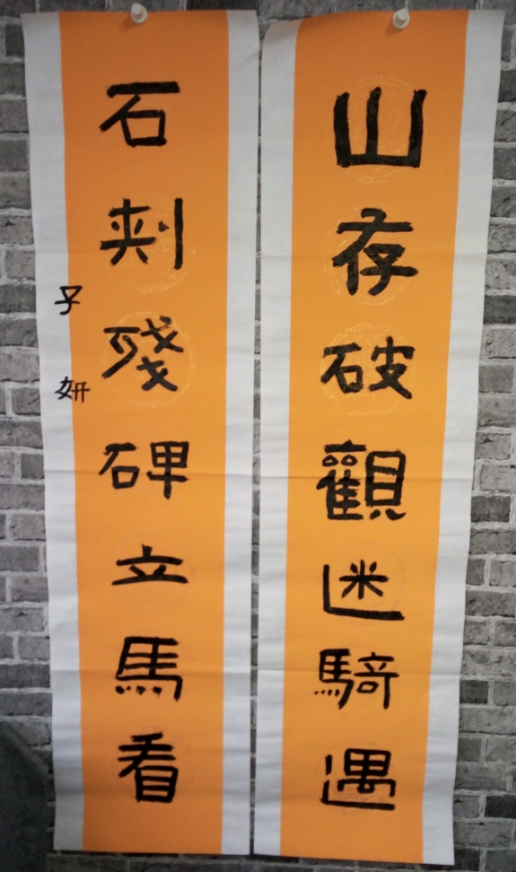 山存破觀迷騎遇
石刾殘碑立馬看
子妍